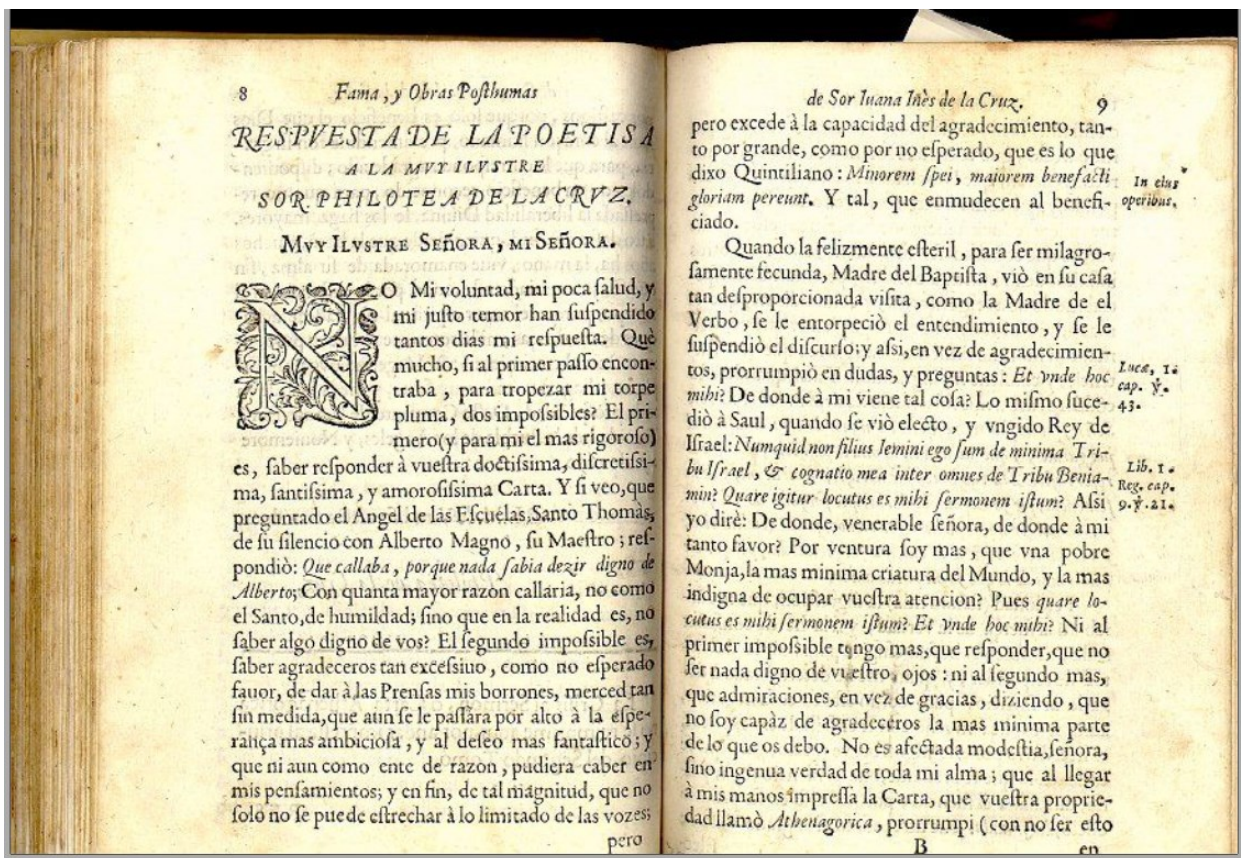 8 Fama, y Obras Posthumas
RESPVESTA DE LA POETISA
A LA MVY ILVSTRE
SOR PHILOTEA DE LA CRVZ.
MVY ILVSTRE SEñORA, MI SEñORA.
NO Mi voluntad, mi poca ſalud, y
mi juſto temor han ſuſpendido
tantos dias mi reſpueſta. Què
mucho, ſi al primer paſſo encon-
traba, para tropezar mi torpe
pluma, dos impoſsibles? El pri-
mero (y para mi el mas rigoroſo)
es, ſaber reſponder à vueſtra doctiſsima, diſcretiſsi-
ma, ſantiſsima, y amoroſiſsima Carta. Y ſi veo, que
preguntado el Angel de las Eſcuelas, Santo Thomàs,
de ſu ſilencio con Alberto Magno, ſu Maeſtro; reſ-
pondiò: Que callaba, porque nada ſabia dezir digno de
Alberto; Con quanta mayor razon callaria, no como
el Santo, de humildad; ſino que en la realidad es, no
ſaber algo digno de vos? El ſegundo impoſsible es,
ſaber agradeceros tan exceſsiuo, como no eſperado
fauor, de dar à las Prenſas mis borrones, merced tan
ſin medida, que aun ſe le paſſara por alto à la eſpe-
rança mas ambicioſa, y al deſeo mas fantaſtico; y
que ni aun como ente de razon, pudiera caber en
mis penſamientos; y en fin, de tal magnitud, que no
ſolo no ſe puede eſtrechar à lo limitado de las vozes;
pero
de Sor Iuana Inès de la Cruz. 9
pero excede à la capacidad del agradecimiento, tan-
to por grande, como por no eſperado, que es lo que
dixo Quintiliano: Minorem ſpei, maiorem benefacti
gloriam pereunt. Y tal, que enmudecen al benefi-
ciado.
In eius
operibus.
Quando la felizmente eſteril, para ſer milagro-
ſamente fecunda, Madre del Baptiſta, viò en ſu caſa
tan deſproporcionada viſita, como la Madre de el
Verbo, ſe le entorpeciò el entendimiento, y ſe le
ſuſpendiò el diſcurſo; y aſsi, en vez de agradecimien-
tos, prorrumpiò en dudas, y preguntas: Et vnde hoc
mihi? De donde à mi viene tal coſa? Lo miſmo ſuce-
diò à Saul, quando ſe viò electo, y vngido Rey de
Iſrael: Numquid non filius Iemini ego ſum de minima Tri-
bu Iſrael, & cognatio mea inter omnes de Tribu Benia-
min? Quare igitur locutus es mihi ſermonem iſtum? Aſsi
yo dirè: De donde, venerable ſeñora, de donde à mi
tanto favor? Por ventura ſoy mas, que vna pobre
Monja, la mas minima criatura del Mundo, y la mas
indigna de ocupar vueſtra atencion? Pues quare lo-
cutus es mihi ſermonem iſtum? Et vnde hoc mihi? Ni al
primer impoſsible tengo mas, que reſponder, que no
ſer nada digno de vueſtros ojos: ni al ſegundo mas,
que admiraciones, en vez de gracias, diziendo, que
no ſoy capàz de agradeceros la mas minima parte
de lo que os debo. No es afectada modeſtia, ſeñora,
ſino ingenua verdad de toda mi alma; que al llegar
à mis manos impreſſa la Carta, que vueſtra proprie-
dad llamò Athenagorica, prorrumpi (con no ſer eſto
Lucæ, 1.
cap. ꝟ.
43.
Lib. 1.
Reg. cap.
9. ꝟ. 21.
B en